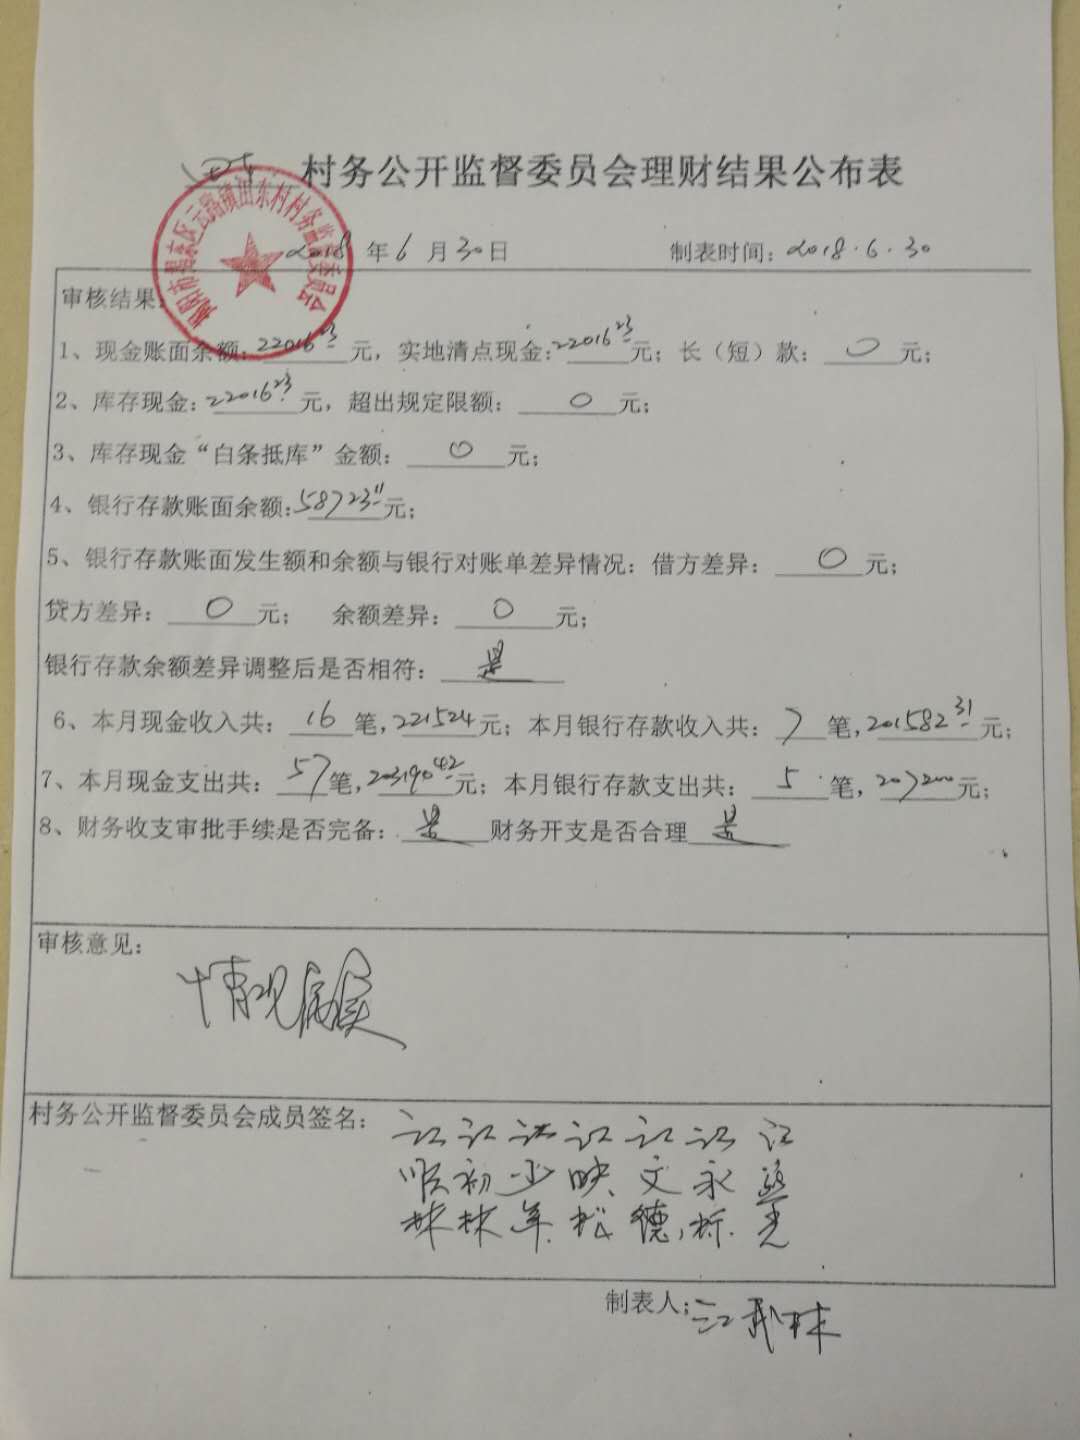 田东 村务公开监督委员会理财结果公布表
揭阳市揭东区云路镇田东村村务监督委员会
2018年6月30日 制表时间：2018.6.30
审核结果：
1、现金账面余额：22016.23元，实地清点现金：22016.23元；长（短）款：0元；
2、库存现金：22016.23元，超出规定限额：0元；
3、库存现金“白条抵库”金额：0元；
4、银行存款账面余额：58723.11元；
5、银行存款账面发生额和余额与银行对账单差异情况：借方差异：0元；
贷方差异：0元； 余额差异：0元；
银行存款余额差异调整后是否相符：是
6、本月现金收入共：16笔，221524元；本月银行存款收入共：7笔，201582.31元；
7、本月现金支出共：57笔，203190.42元；本月银行存款支出共：5笔，207200元；
8、财务收支审批手续是否完备：是 财务开支是否合理 是
审核意见：
情况属实
村务公开监督委员会成员签名：
江 江 江 江 江 江 江
顺 初 少 映 文 永
林 林 军 松 德 标 光
制表人：江 林